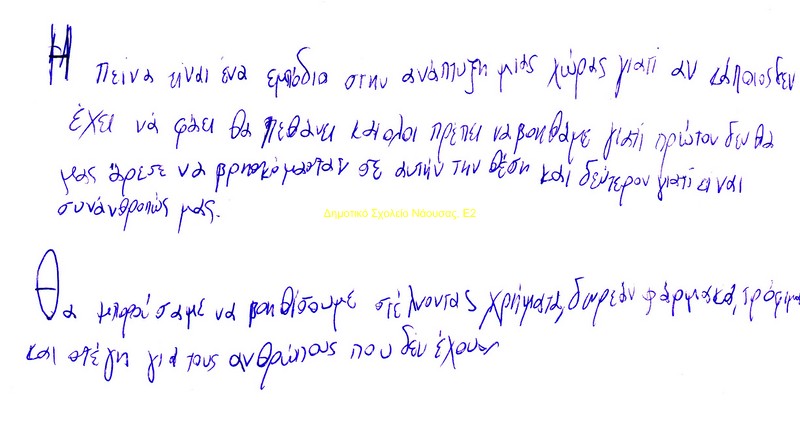 Η πείνα είναι ένα εμπόδια στην ανάπτυξη μιας χώρας γιατί αν κάποιος δεν
έχει νά φάει θα πεθάνει και ολοι πρέπει να βοηθάμε γιατί πρώτον δεν θα
μας άρεσε να βρησκόμασταν σε αυτήν την θέση και δεύτερον γιατί είναι
συνάνθροπώς μας.
Δημοτικό Σχολείο Νάουσας, Ε2
Θα μπορούσαμε να βοηθίσουμε στέλνοντας χρήματα, δωρεάν φάρμακα, τρόφιμα
και στέγη για τους ανθρώπους που δεν έχουν